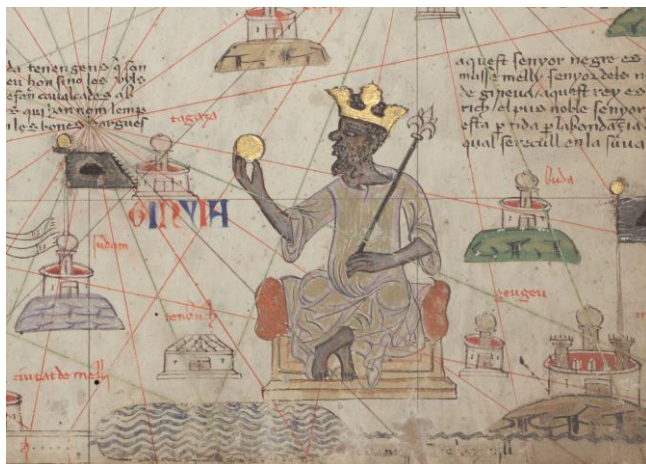 da tenen gens q̃ son
sino los
efan caualcades ab
s qui han nom lemp
n les bones dargues
aquest senyor negre es
musse melly senyor dels n
de gineua aquest rey es
rich / el pus noble senyor
esta ptida p labondaçia d
qual se recull en la suua
tagaza
GINVIA
buda
sudam
tenbuch
geugeu
ciutat de melly